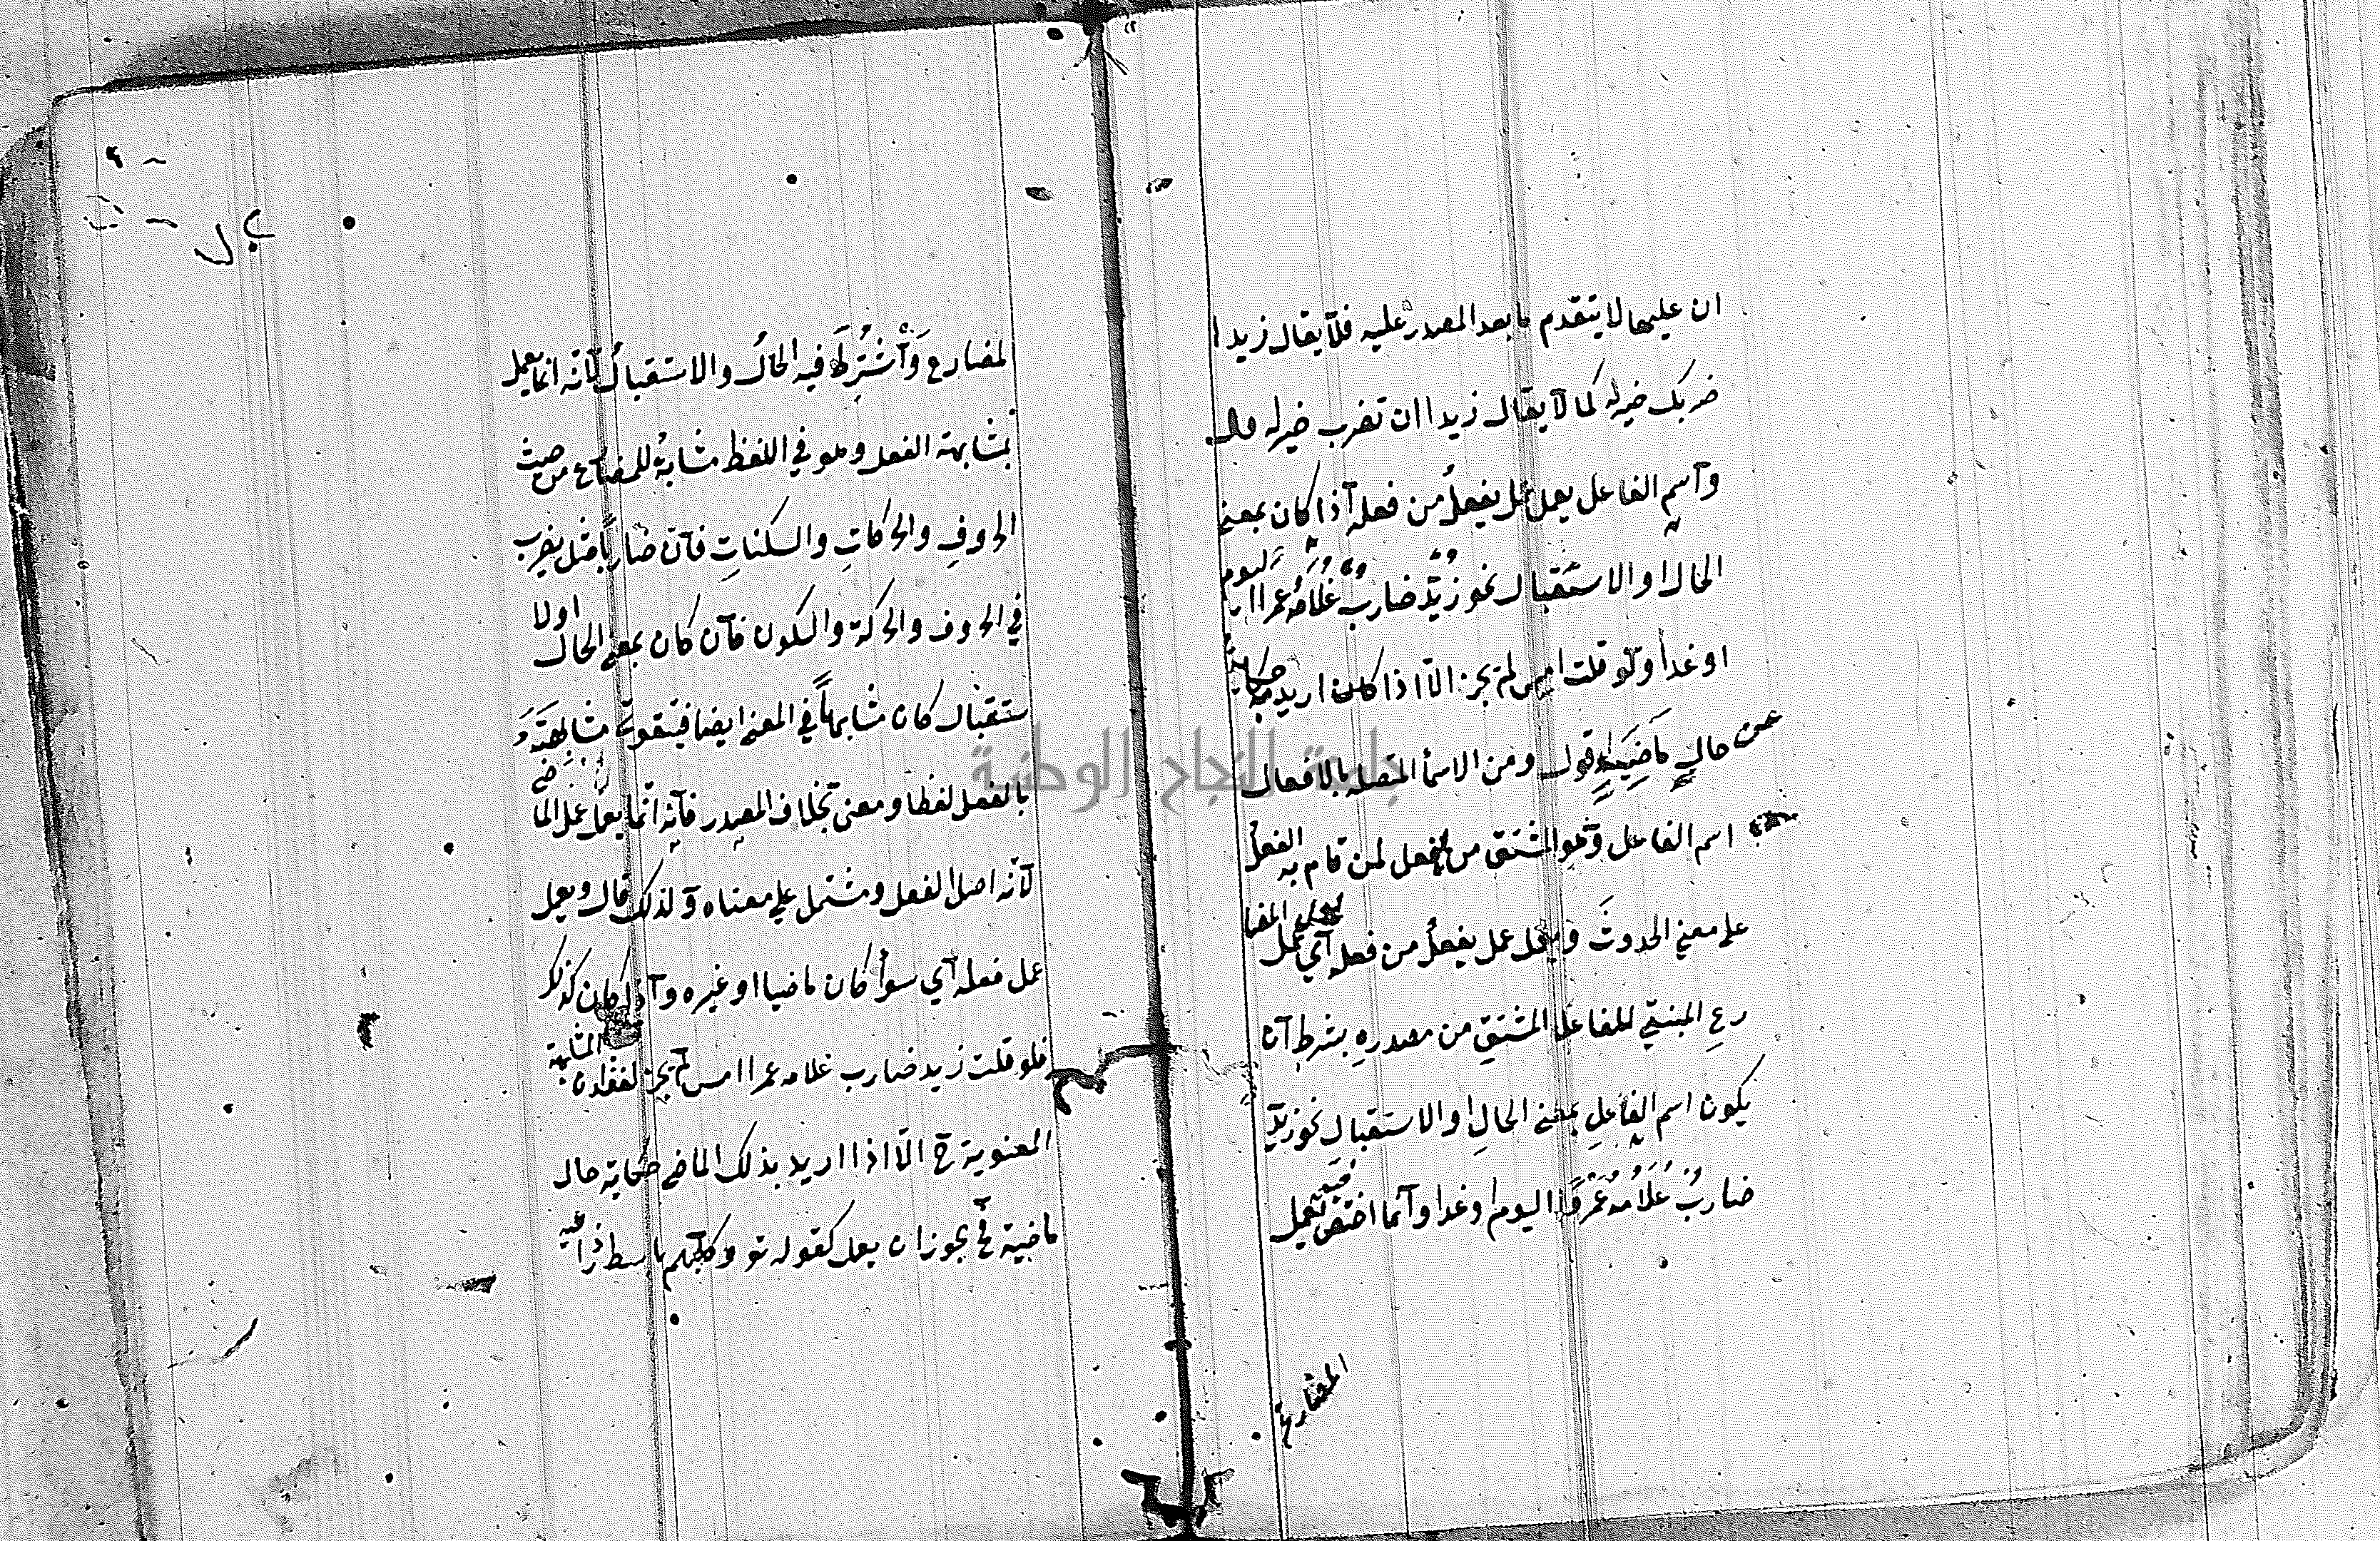 ان عليها لا يتقدم ما بعد المصدر عليه فلا يقال زيدا
ضربك خير له كما لا يقال زيدا ان تضرب خير له قال
واسم الفاعل يعمل عمل يفعل من فعله اذا كان بمعنى
الحال او الاستقبال نحو زيد ضارب غلامه عمرا اليوم
او غدا ولو قلت امس لم يجز الا اذا كان اريد به حكاية
حال ماضية اقول ومن الاسماء المتصلة بالافعال
اسم الفاعل وهو المشتق من يفعل لمن قام به الفعل
على معنى الحدوث ويعمل عمل يفعل من فعله اي عمل المضا
رع المبني للفاعل المشتق من مصدره بشرط ان
يكون اسم الفاعل بمعنى الحال او الاستقبال نحو زيد
ضارب غلامه عمرا اليوم او غدا وانما اختص عمل
المضارع
لمضارع واشترط فيه الحال والاستقبال لانه انما يعمل
بمشابهة الفعل وهو في اللفظ مشابه للمضارع من حيث
الحروف والحركات والسكنات فان ضاربا مثل يضرب
في الحروف والحركة والسكون فان كان بمعنى الحال اولا
ستقبال كان مشابها في المعنى ايضا فيتقوى مشابهته
بالفعل لفظا ومعنى بخلاف المصدر فانه انما يعمل عمل الماضي
لانه اصل الفعل ومشتمل على معناه ولذلك قال ويعمل
عمل فعله اي سواء كان ماضيا او غيره واذا كان كذلك
فلو قلت زيد ضارب غلامه عمرا امس لم يجز لفقدان المشابهة
المعنوية ح الا اذا اريد بذلك الماضي حكاية حال
ماضية فح يجوز ان يعمل كقوله تع وكلبهم باسط ذراعيه